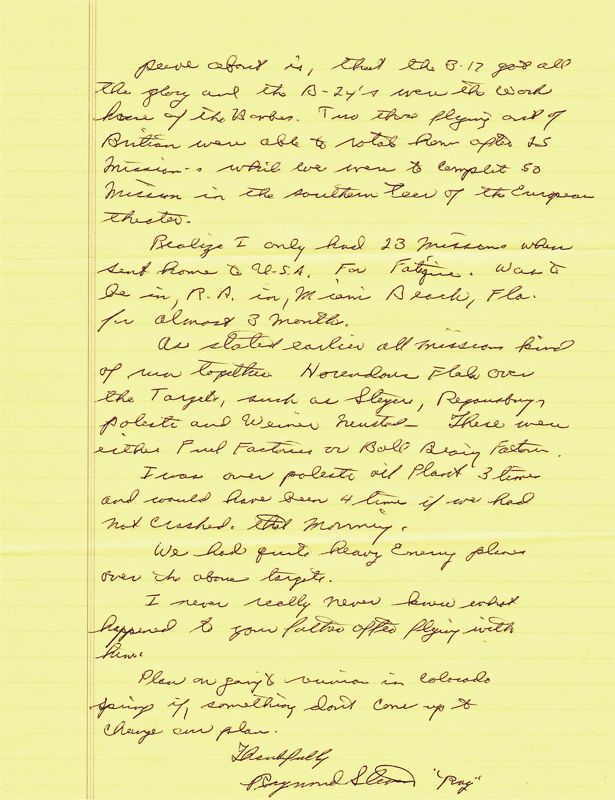 peeve about is, that the B-17 got all
the glory and the B-24's were the work
horse of the Bombes. Two those flying out of
British were able to rotate home after 25
Mission-s while we were to complet 50
Mission in the southern teer of the European
theater.
Realize I only had 23 missions when
sent home to U.S.A. For Fatigue. Was to
be in, R.A. in, Miami Beach, Fla.
for almost 3 months.
As stated earlier all missions kind
of run together Horendous Flak over
the Targets, such as Steyer, Regansburg,
polesti and Weiner Neustad- These were
either Fuel Factories or Ball Bearing Factories.
I was over polesti oil Plant 3 times
and would have been 4 time if we had
not crashed. that Morning.
We had quite heavy Enemy planes
over the above targets.
I never really never knew what
happened to your father after flying with
him.
Plan on going to reunion in Colorado
springs if, something don't come up to
change our plan.
Thankfully
Raymond "Ray"